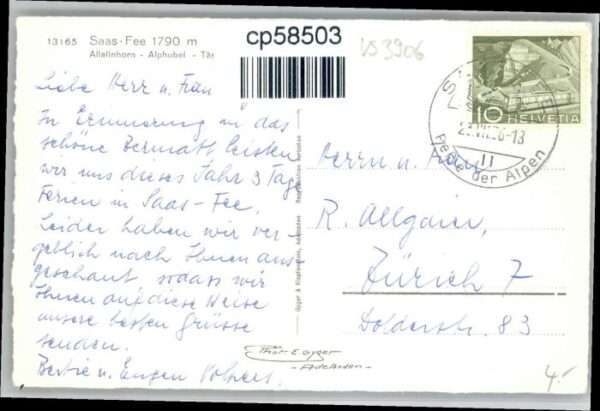 13165 Saas-Fee 1790 m
Allalinhorn - Alphubel - Täs
cp58503
VS3906
Liebe Herr u. Frau
In Erinnerung an das
schöne Zermatt, leisten
wir uns dieses Jahr 3 Tage
Ferien in Saas-Fee.
Leider haben wir ver-
geblich nach Ihnen aus-
geschaut, sodass wir
Ihnen auf diese Weise
unsere besten Grüsse
senden.
Bertie u. Eugen
10 HELVETIA
Perle der Alpen
11
Herrn u. Frau
R. Allgaier,
Zürich 7
Dolderstr. 83
Gyger & Klopfenstein, Adelboden
Thor E Gyger
- Adelboden -
4.-